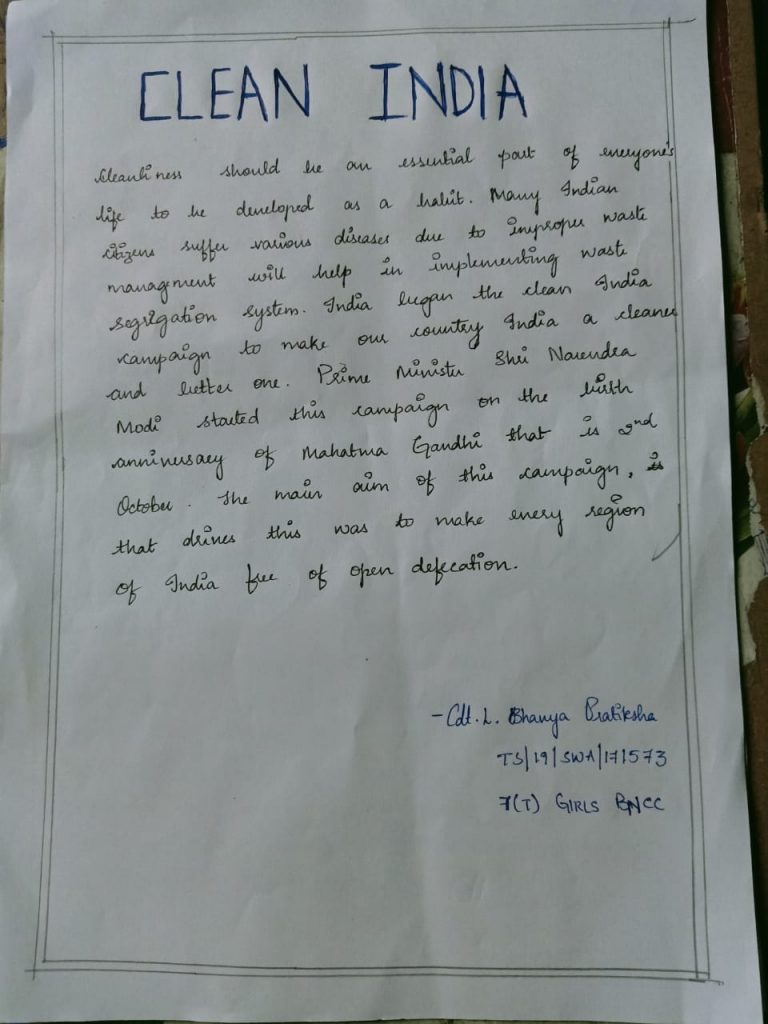 CLEAN INDIA
Cleanliness should be an essential part of everyone's
life to be developed as a habit. Many Indian
citizens suffer various diseases due to improper waste
management will help in implementing waste
segrigation system. India began the clean India
campaign to make our country India a cleaner
and better one. Prime Minister Shri Narendra
Modi started this campaign on the birth
anniversary of Mahatma Gandhi that is 2nd
October. The main aim of this campaign,
that drives this was to make every region
of India free of open defecation.
-Cdt. L. Bhavya Pratiksha
TS/19/SWA/171573
7(T) GIRLS BNCC